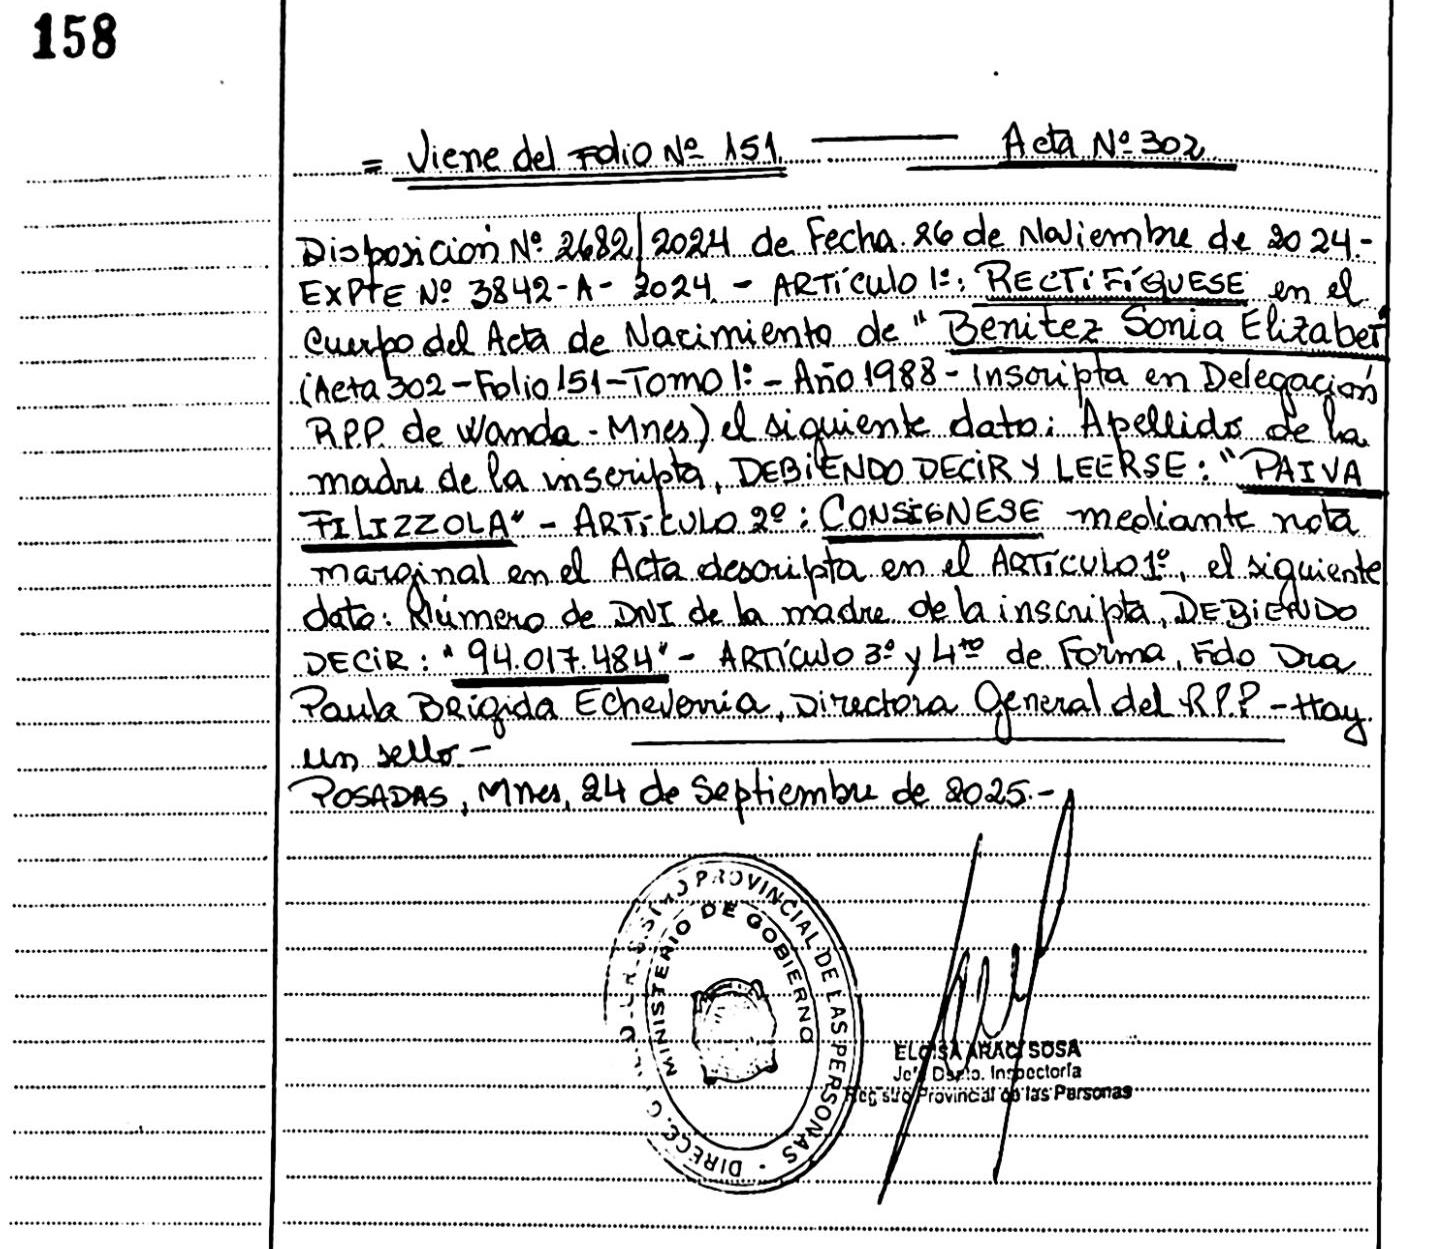 158
= Viene del Folio Nº 151. Acta Nº 302
Disposición Nº 2682/2024 de Fecha 26 de Noviembre de 2024.-
EXPTE Nº 3842-A-2024. - ARTÍCULO 1º: RECTIFÍQUESE en el
Cuerpo del Acta de Nacimiento de "Benitez Sonia Elizabet"
(Acta 302-Folio 151-Tomo 1º - Año 1988 - Inscripta en Delegación
R.P.P. de Wanda - Mnes) el siguiente dato: Apellido de la
madre de la inscripta, DEBIENDO DECIR Y LEERSE: "PAIVA
FILIZZOLA" - ARTÍCULO 2º: CONSIGNESE mediante nota
marginal en el Acta descripta en el ARTÍCULO 1º, el siguiente
dato: Número de DNI de la madre de la inscripta, DEBIENDO
DECIR: "94.017.484" - ARTÍCULO 3º y 4to de Forma, Fdo Dra
Paula Brigida Echeverria, Directora General del R.P.P - Hay
un sello.-
POSADAS, Mnes, 24 de Septiembre de 2025.-
PROVINCIAL DE LAS PERSONAS - DIREC.
MINISTERIO DE GOBIERNO
ELOISA ARACI SOSA
Jefe Dpto. Inspectoría
Registro Provincial de las Personas